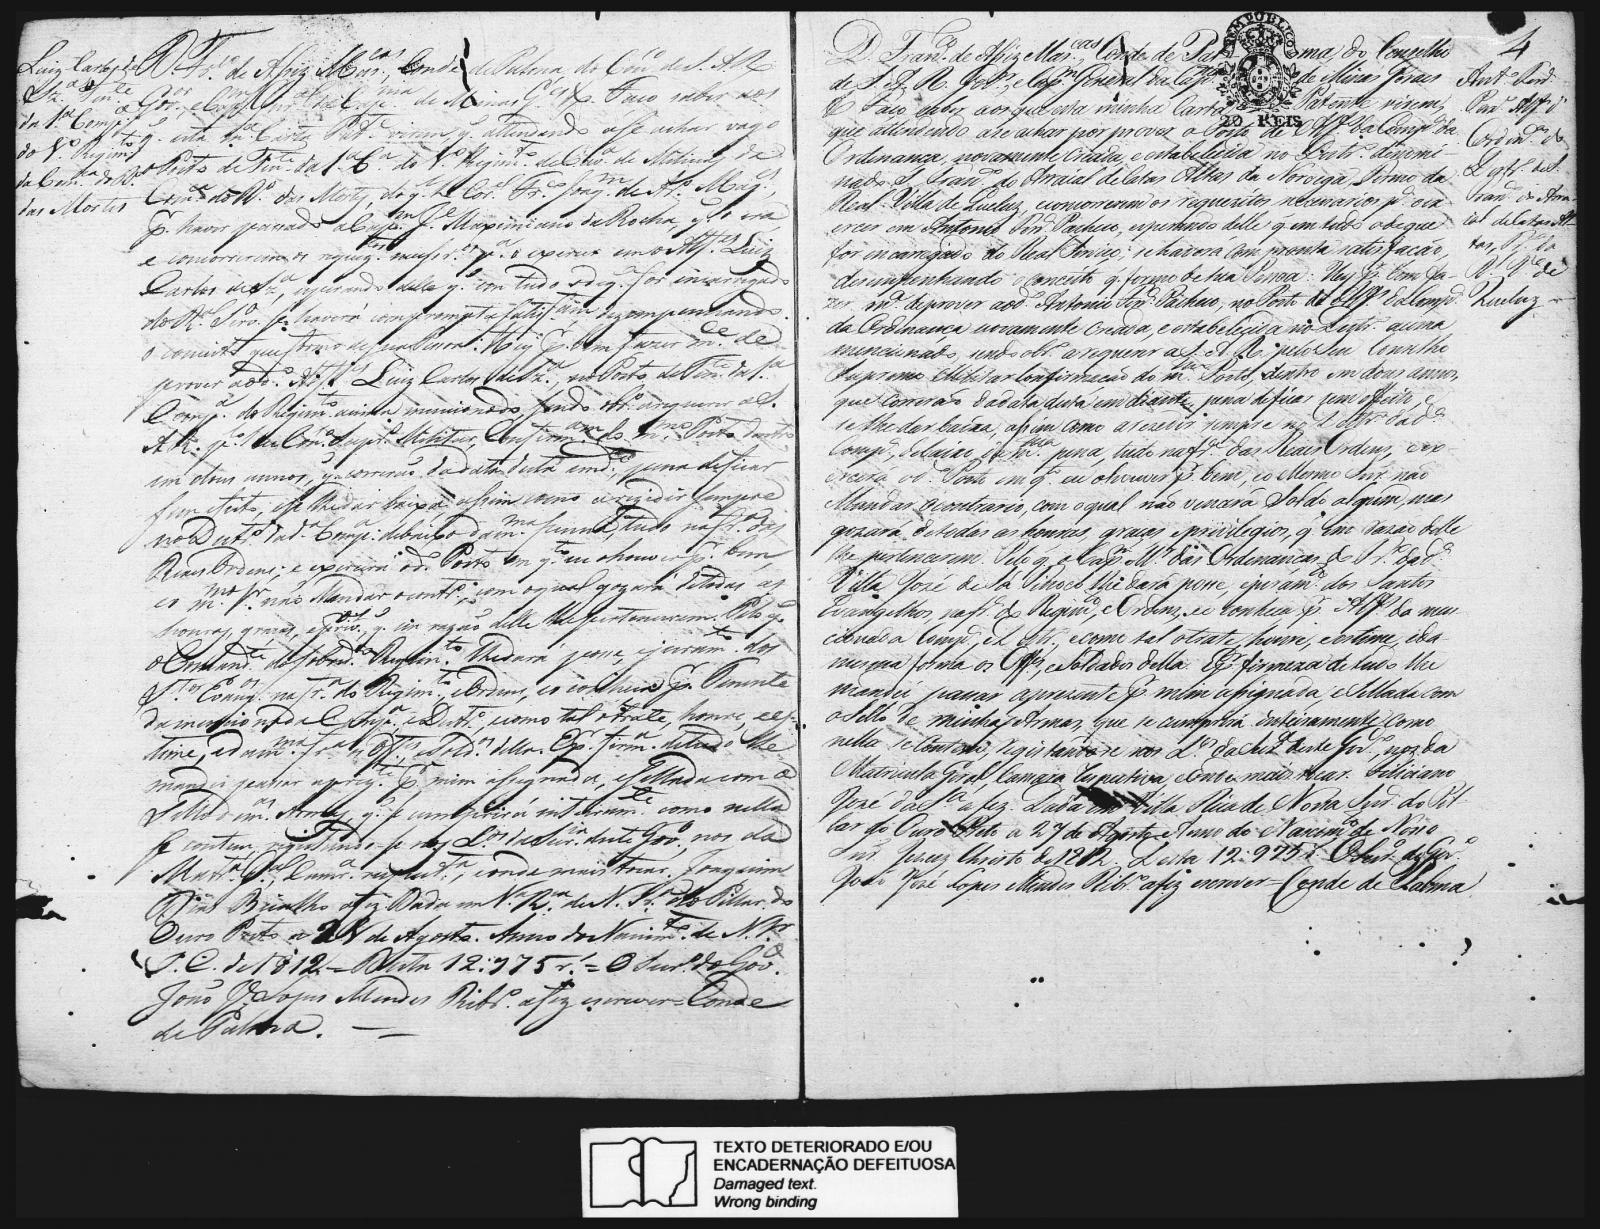 Luiz Carlos de
Sz.ª Ten.te
da 1.ª Comp.ª
do 1.º Regim.to
da Com.ca do R.º
das Mortes
D. Fr.co de Assiz Mas.cas, Conde de Palma, do Con.º de S. A. R.
Gov.or, e Cap.m Gen.al da Cap.nia de Minas G.es &. Faço saber aos
q. esta m.ª Carta Pat.e virem, q. attendendo a se achar vago
o Posto de Ten.te da 1.ª C.ª do 1.º Regim.to de Cav.ª de Milicias da
Com.ca do R.º das Mortes, do q. hé Cor.el Fr.co Joaq.m de Ar.º Mag.es,
p.r haver passado a Cap.m J.e Maximiano da Rocha,
e concorrerem os requiz.tos necessr.os p.ª o exercer em o Alf.es Luiz
Carlos de Sz.ª, esperando delle q. em tudo o de q. for encarregado
do R.l Serv.º se haverá com prompta satisfação, dezempenhando
o conceito que formo de sua Pessoa: Hey p.r bem fazer m.ce de
prover ao d.º Alf.es Luiz Carlos de Sz.ª, no Posto de Ten.te da 1.ª
Comp.ª do Regim.to acima mencionado, sendo obr.º a requerer a S.
A. R. p.lo seu Con.º Supr.º Militar, Confirm.am do m.mo Posto dentro
em dous annos, q. correrão da data desta em d.e, pena de ficar
sem efeito, e se lhe dar baixa assim como a rezidir sempre
no Destr.º da d.ª Comp.ª debaixo da m.ma pena, tudo na fr.ª das
Reaes Ordens; e exercerá o d.º Posto em q.to eu o houver p.r bem,
e o m.mo Sr. não Mandar o contr.º, com o qual gozará de todas as
honras, graças, e priv.os, q. em razão delle lhe pertencerem. Pelo q.
o Comand.e do sobred.º Regim.to lhe dará posse, e juram.to dos
S.tos Evang.os na fr.ª do Regim.to, e Ordens, e o conheça p.r Tenente
da mencionada Comp.ª e Destr.º, e como tal o trate, honre, e es-
time, e da m.ma fr.ª os Off.es, e Sold.os della. E p.r firm.ª de tudo lhe
mandei passar a prez.te p.r mim assignada, e Sellada com o
Sello de m.as Armas, q. se cumprirá inteiram.te como nella
se contem, registando-se nos L.os da Secr.ia deste Gov.º, nos da
Matr.ª G.al, Camr.ª respect.ª, e onde mais tocar. Joaquim
Dias Bicalho a fez Dada em V.ª R.ca de N. Sr.ª do Pillar do
Ouro Preto a 28 de Agosto. Anno do Nascim.to de N. Sr.
J. C. de 1812. = Desta 12:975 r.s = O Secr.º do Gov.º
João J.e Lopes Mendes Ribr.º a fez escrever = Conde
de Palma. —
4
D. Fran.co de Assiz Mas.cas Conde de Palma, do Conselho
de S. A. R. Gov.or, e Cap.m General da Cap.nia de Minas Geraes
& Faço saber aos que esta minha Carta Patente virem,
que attendendo a se achar por prover o Posto de Alf.es da Comp.ª da
Ordenança, novamente creada, e estabelecida no Destr.º denomi-
nado S. Fran.co do Arraial de Catas Altas da Noroega, Termo da
Real Villa de Queluz, e concorrerem os requezitos necessarios p.ª o ex-
ercer em Antonio Ferr.ª Pacheco, esperando delle q. em tudo o de que
for encarregado do Real Serviço; se haverá com prompta satisfação,
dezempenhando o conceito q. formo de sua Pessoa: Hey p.r bem fa-
zer m.ce de prover ao d.º Antonio Ferr.ª Pacheco, no Posto de Alf.es da Comp.ª
da Ordenança novamente creada, e estabelecida no Destr.º acima
mencionado, sendo obr.º a requerer a S. A. R. pelo seu Conselho
Supremo Militar confirmação do m.mo Posto, dentro em dous annos,
que correrão da data desta em diante, pena de ficar sem effeito, e
se lhe dar baixa, assim como a rezidir sempre no Destr.º da d.ª
Comp.ª, debaixo da m.ma pena, tudo na fr.ª das Reaes Ordens, e ex-
ercerá o d.º Posto em q.to eu o houver p.r bem, e o Mesmo Snr. não
Mandar o contrario, com o qual não vencerá Soldo algum, mas
gozará de todas as honras, graças e privilegios, q. em razão delle
lhe pertencerem. Pelo q. o Cap.m M.r das Ordenanças do Tr.º da d.ª
Villa José de Sá lhe dará posse, e juram.to dos Santos
Evangelhos, na fr.ª do Regim.to, e Ordens, e o conheça p.r Alf.es da men-
cionada Comp.ª, e Destr.º, e como tal o trate, honre, e estime, e da
mesma forma os Off.es, e Soldados della. E p.r firmeza de tudo lhe
mandei passar a prezente p.r mim assignada, e Sellada com
o Sello de minhas Armas, que se cumprirá inteiramente como
nella se contem, registando-se nos L.os da Secr.ª deste Gov.º, nos da
Matricula Geral, Camara respectiva, e onde mais tocar. Feliciano
José da S.ª a fez. Dada em Villa Rica de Nossa Snr.ª do Pil-
lar do Ouro Preto a 27 de Agosto Anno do Nascim.to de Nosso
Snr. Jesus Christo de 1812. Desta 12:975 r.s O Secr.º do Gov.º
João José Lopes Mendes Ribr.º a fez escrever = Conde de Palma
Ant.º Ferr.ª
Pac.º Alf.es d
Orden.ças do
Destr.º de S.
Fran.co do Arra-
ial de Catas Al-
tas, Tr.º da
R.l V.ª de
Queluz —
20 REIS
TEXTO DETERIORADO E/OU
ENCADERNAÇÃO DEFEITUOSA
Damaged text.
Wrong binding